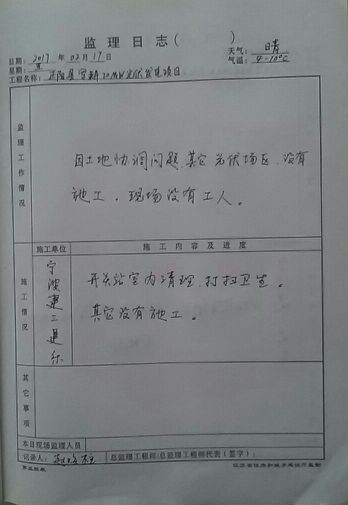 监理日志( )
日期: 2017 年 02 月 17 日 天气: 晴
星期: 五 气温: 4-10°C
工程名称: 20MW光伏发电项目
监理工作情况
因土地协调问题,其它光伏场区,没有
施工,现场没有工人。
施工单位 施工内容及进度
施工情况
宁波建工
开关站室内清理,打扫卫生。
其它没有施工。
其它事项
本日现场监理人员
记录人: 总监理工程师/总监理工程师代表(签字):